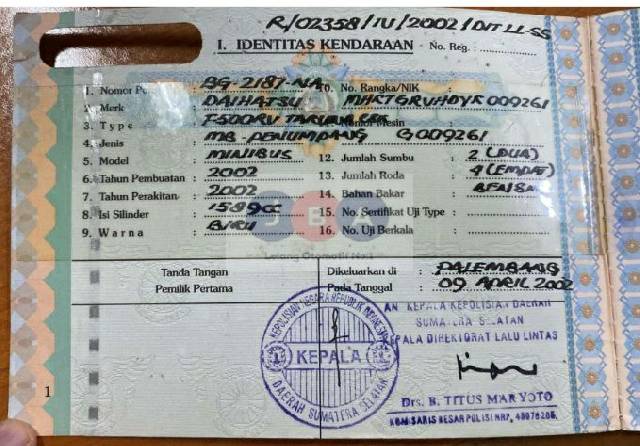 R/02358/IU/2002/DIT LL-SS
I. IDENTITAS KENDARAAN - No. Reg. :
1. Nomor Po : BG-2187-NA
2. Merk : DAIHATSU
3. Type :
4. Jenis : MB. PENUMPANG
5. Model : MINIBUS
6. Tahun Pembuatan : 2002
7. Tahun Perakitan : 2002
8. Isi Silinder : 1589CC
9. Warna : BIRU
10. No. Rangka/NIK :
MHKTGRVHDYK009261
Nomor Mesin
G009261
12. Jumlah Sumbu : 2 (DUA)
13. Jumlah Roda : 4 (EMPAT)
14. Bahan Bakar : BENSIN
15. No. Sertifikat Uji Type :
16. No. Uji Berkala :
Tanda Tangan
Pemilik Pertama
Dikeluarkan di : PALEMBANG
Pada Tanggal : 09 APRIL 2002
AN KEPALA KEPOLISIAN DAERAH
SUMATERA SELATAN
KEPALA DIREKTORAT LALU LINTAS
KEPOLISIAN NEGARA REPUBLIK INDONESIA
KEPALA
DAERAH SUMATERA SELATAN
Drs. B. TITUS MARYOTO
KOMISARIS BESAR POLISI NRP.
1